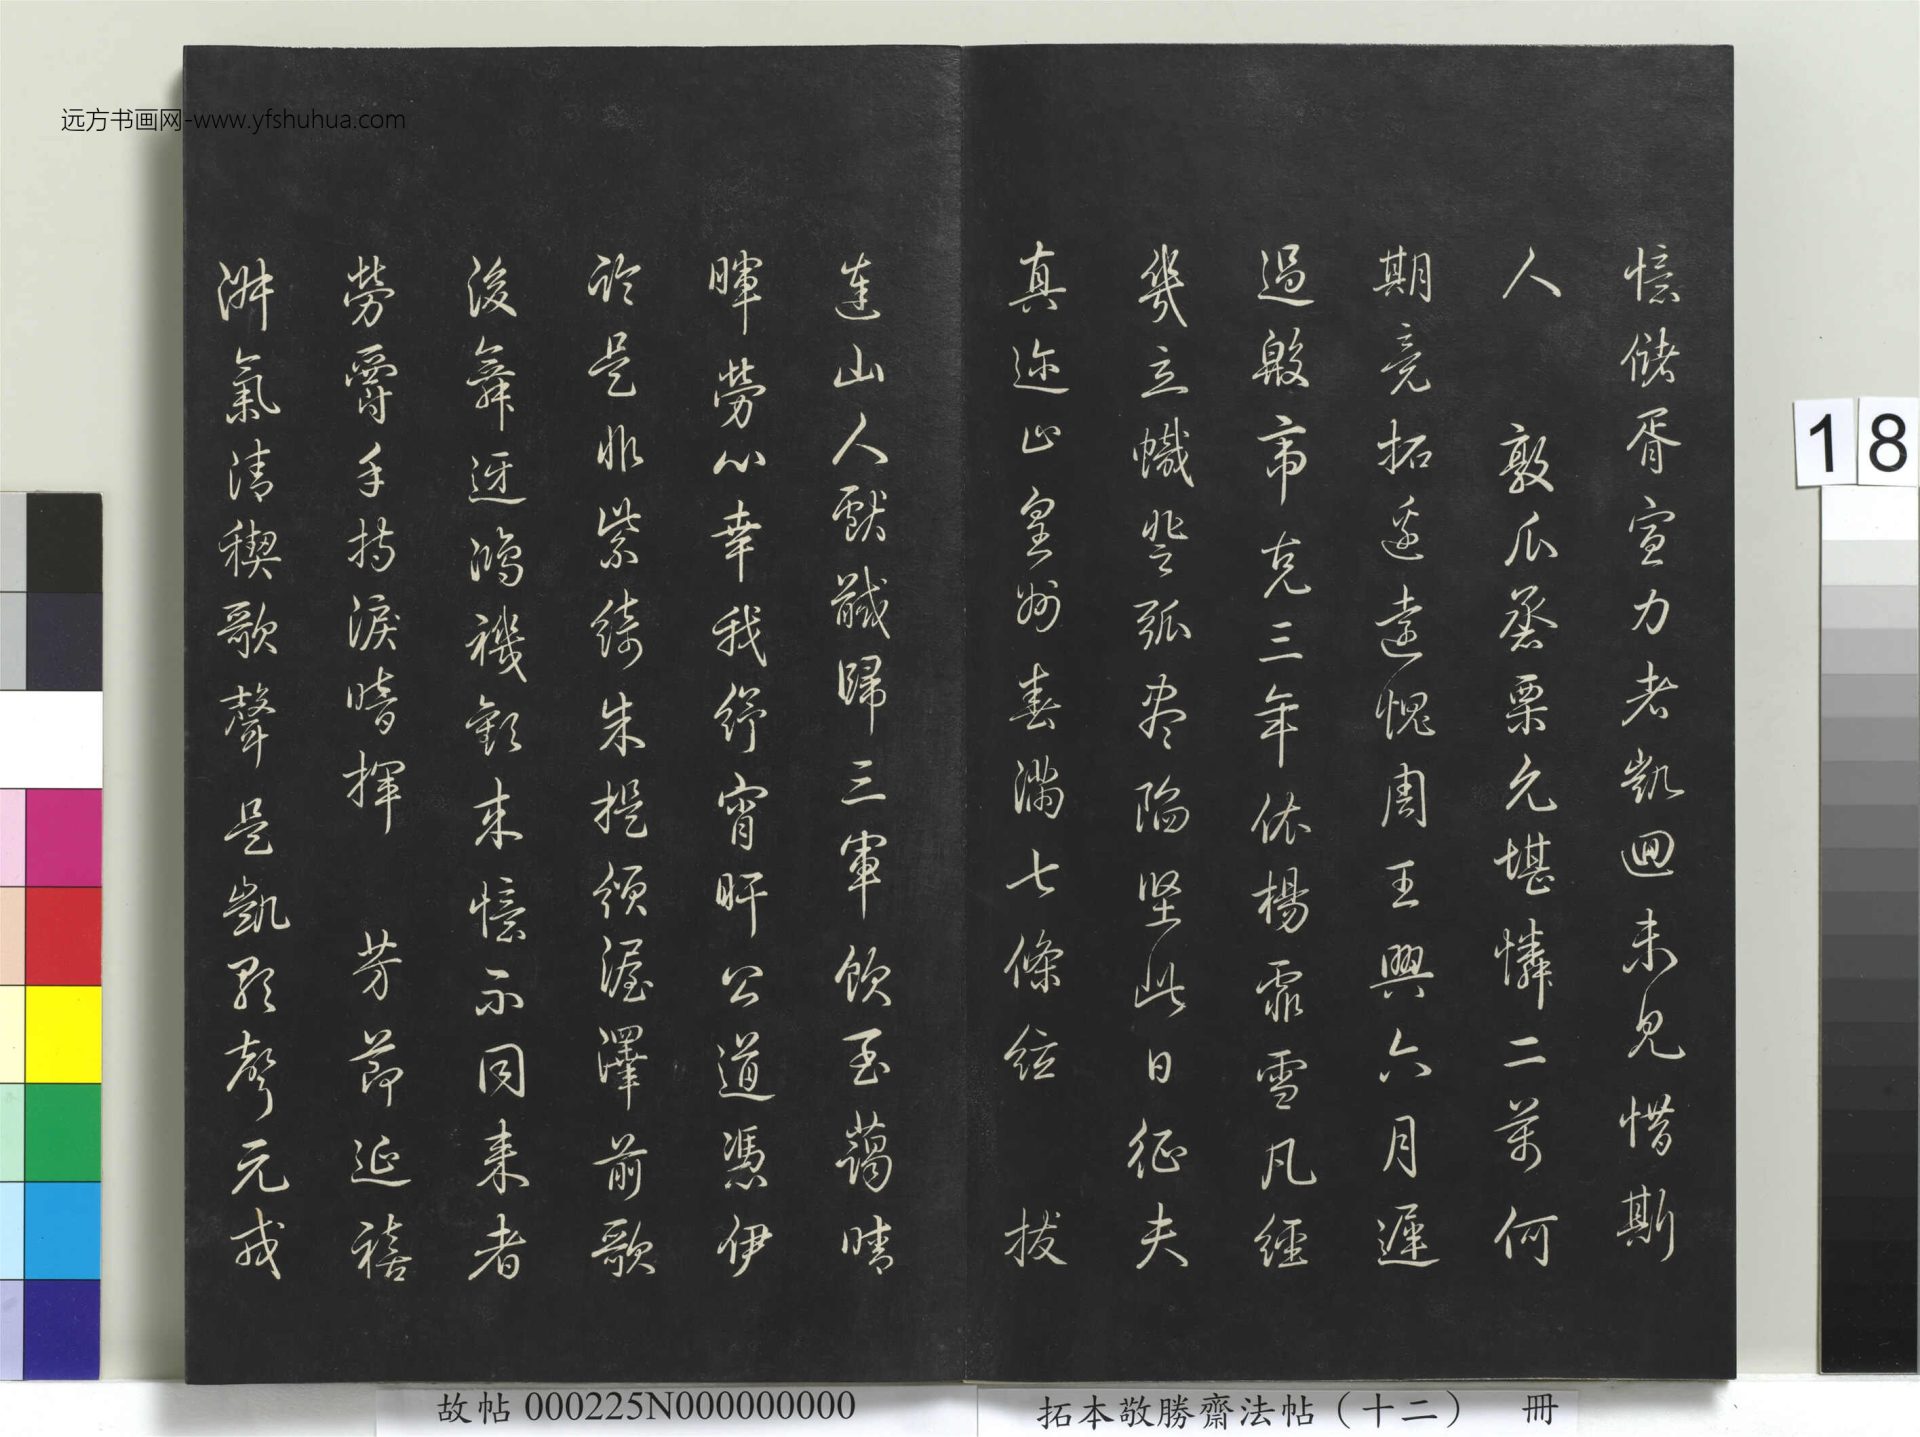 远方书画网-www.yfshuhua.com
憶儲胥宣力者凱迴未見惜斯
人 敦瓜烝栗允堪憐二萬何
期竟拓邊遠愧周王興六月遲
過殷宗克三年依楊霏雪凡經
幾立幟登弧盡陷堅此日征夫
真迩止皇州春滿七條絃 拔
達山人獻馘歸三軍飲至藹晴
暉勞心幸我紓宵旰公道憑伊
論是非紫綺朱提頒渥澤前歌
後舞迓鴻禨歡來憶不同來者
勞爵手持淚暗揮 芳節延禧
淑氣清稧歌聲是凱歌聲元戎
18
故帖 000225N000000000
拓本敬勝齋法帖(十二) 冊